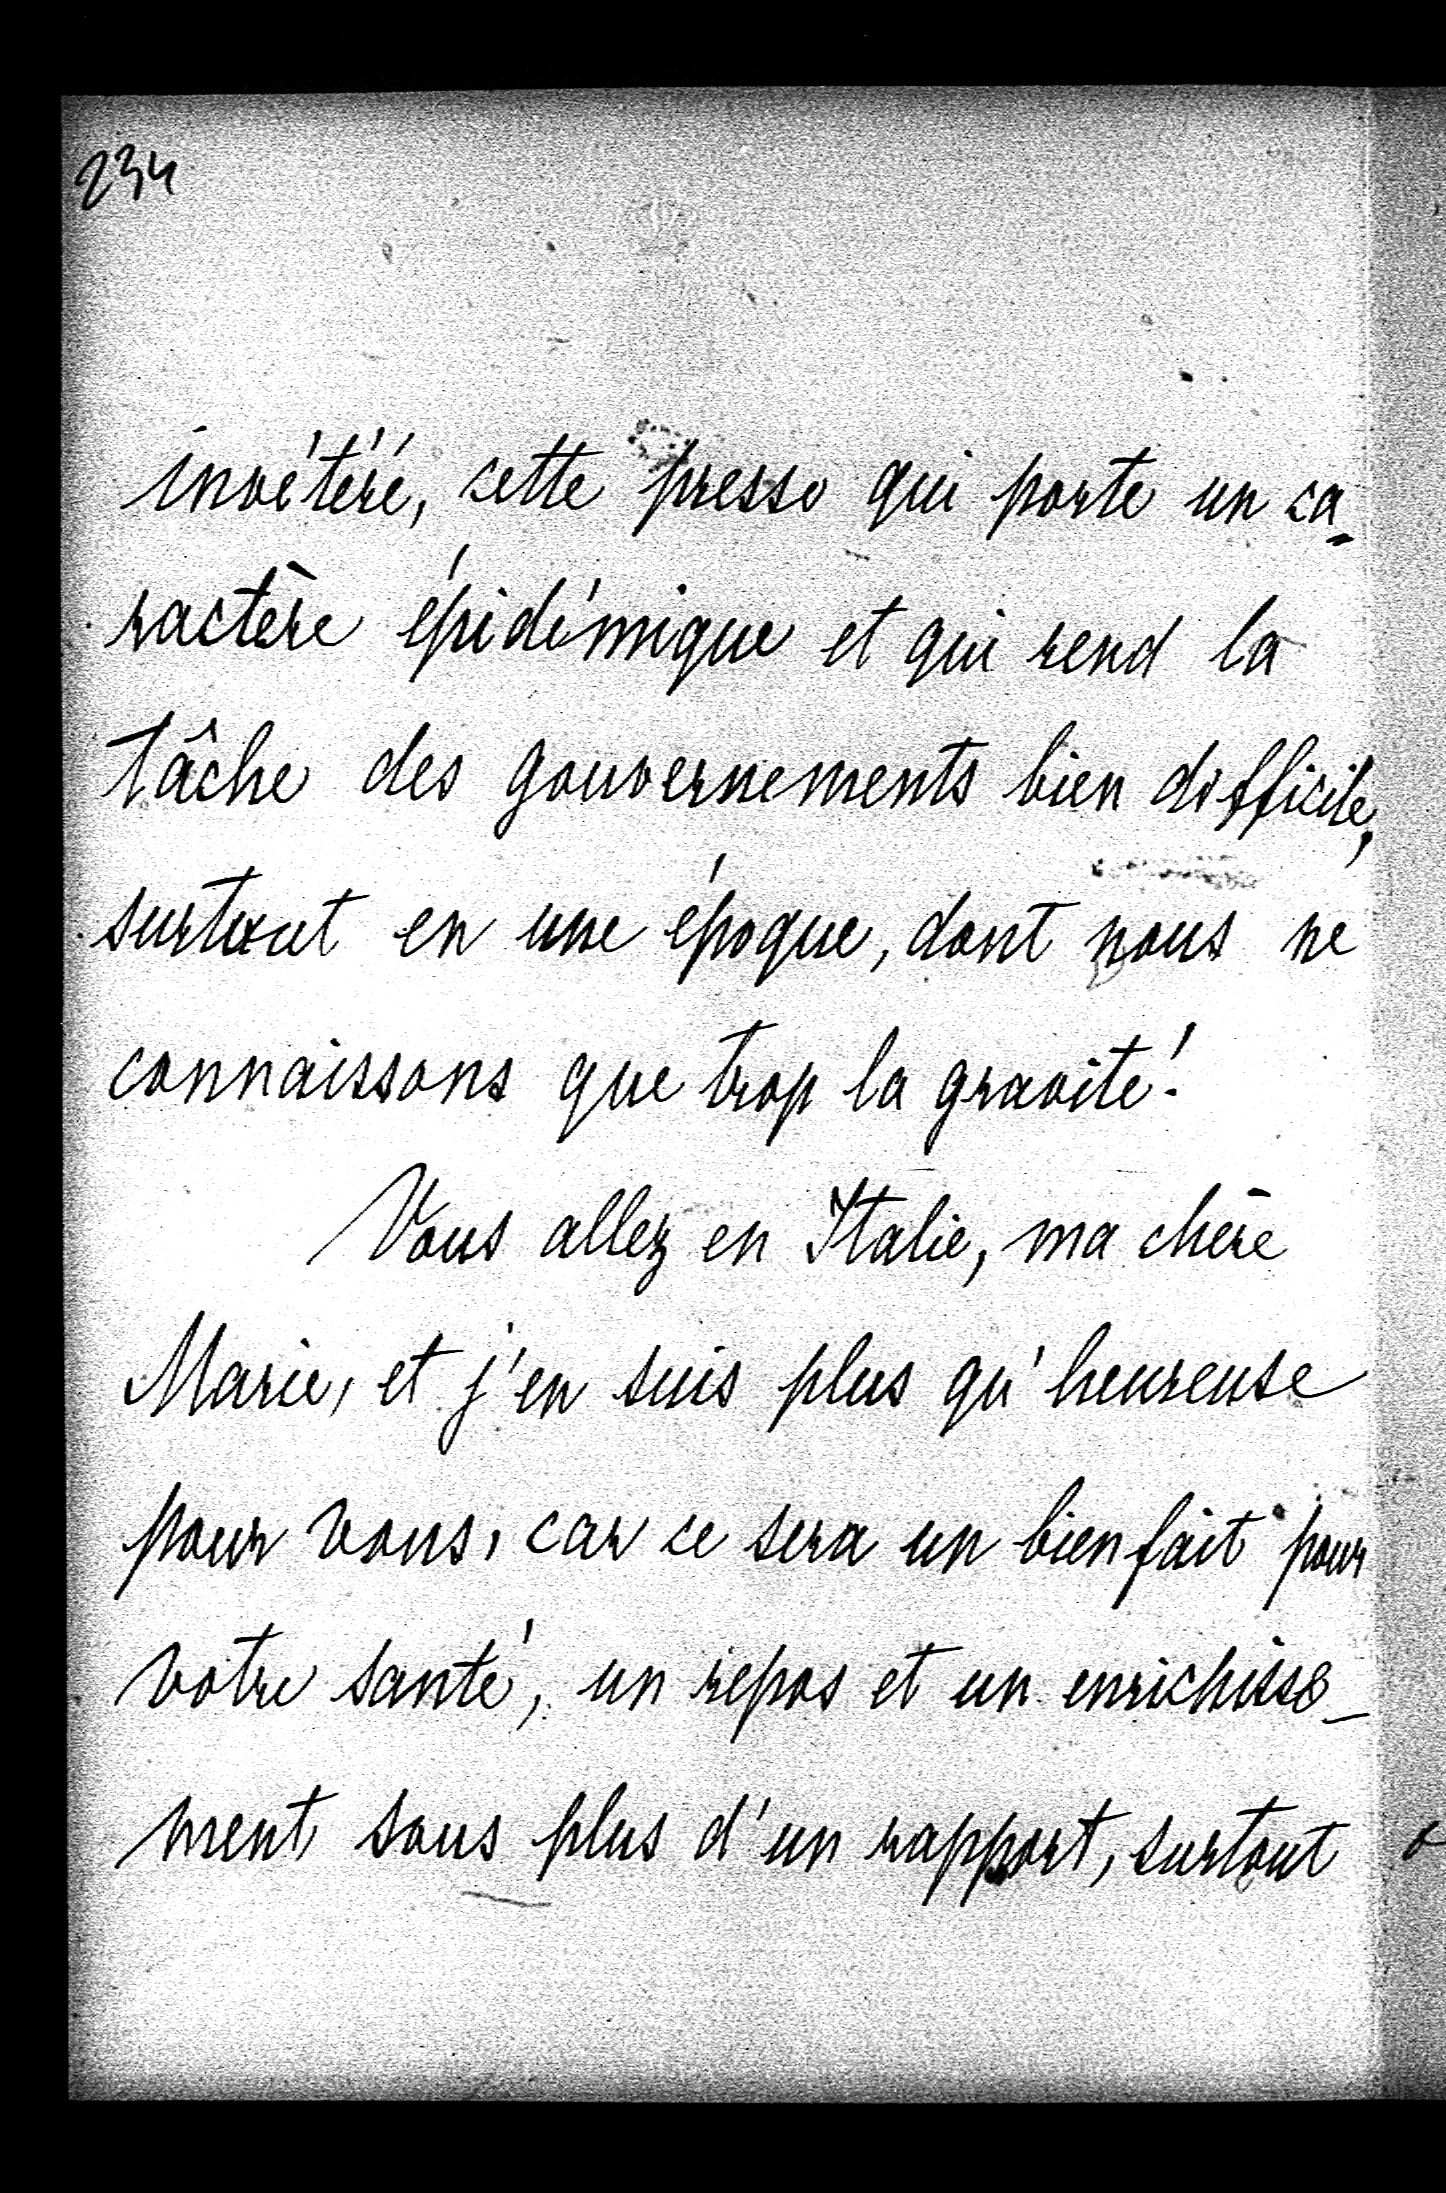 234
invétéré, cette presse qui porte un ca-
ractère épidémique et qui rend la
tâche des gouvernements bien difficile,
surtout en une époque, dont nous ne
connaissons que trop la gravité!
Vous allez en Italie, ma chère
Marie, et j'en suis plus qu'heureuse
pour vous, car ce sera un bienfait pour
votre santé, un repos et un enrichisse-
ment sous plus d'un rapport, surtout